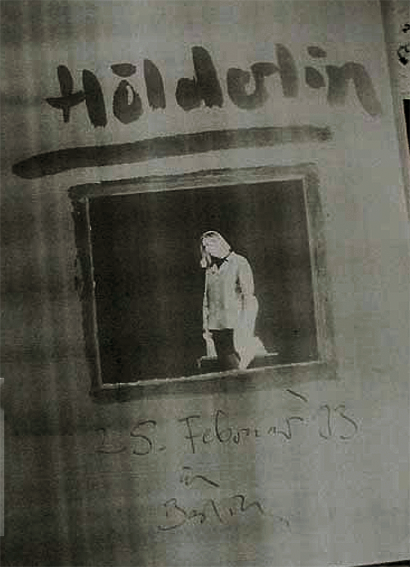 Hölderlin
25. Februar 93
in
Berlin